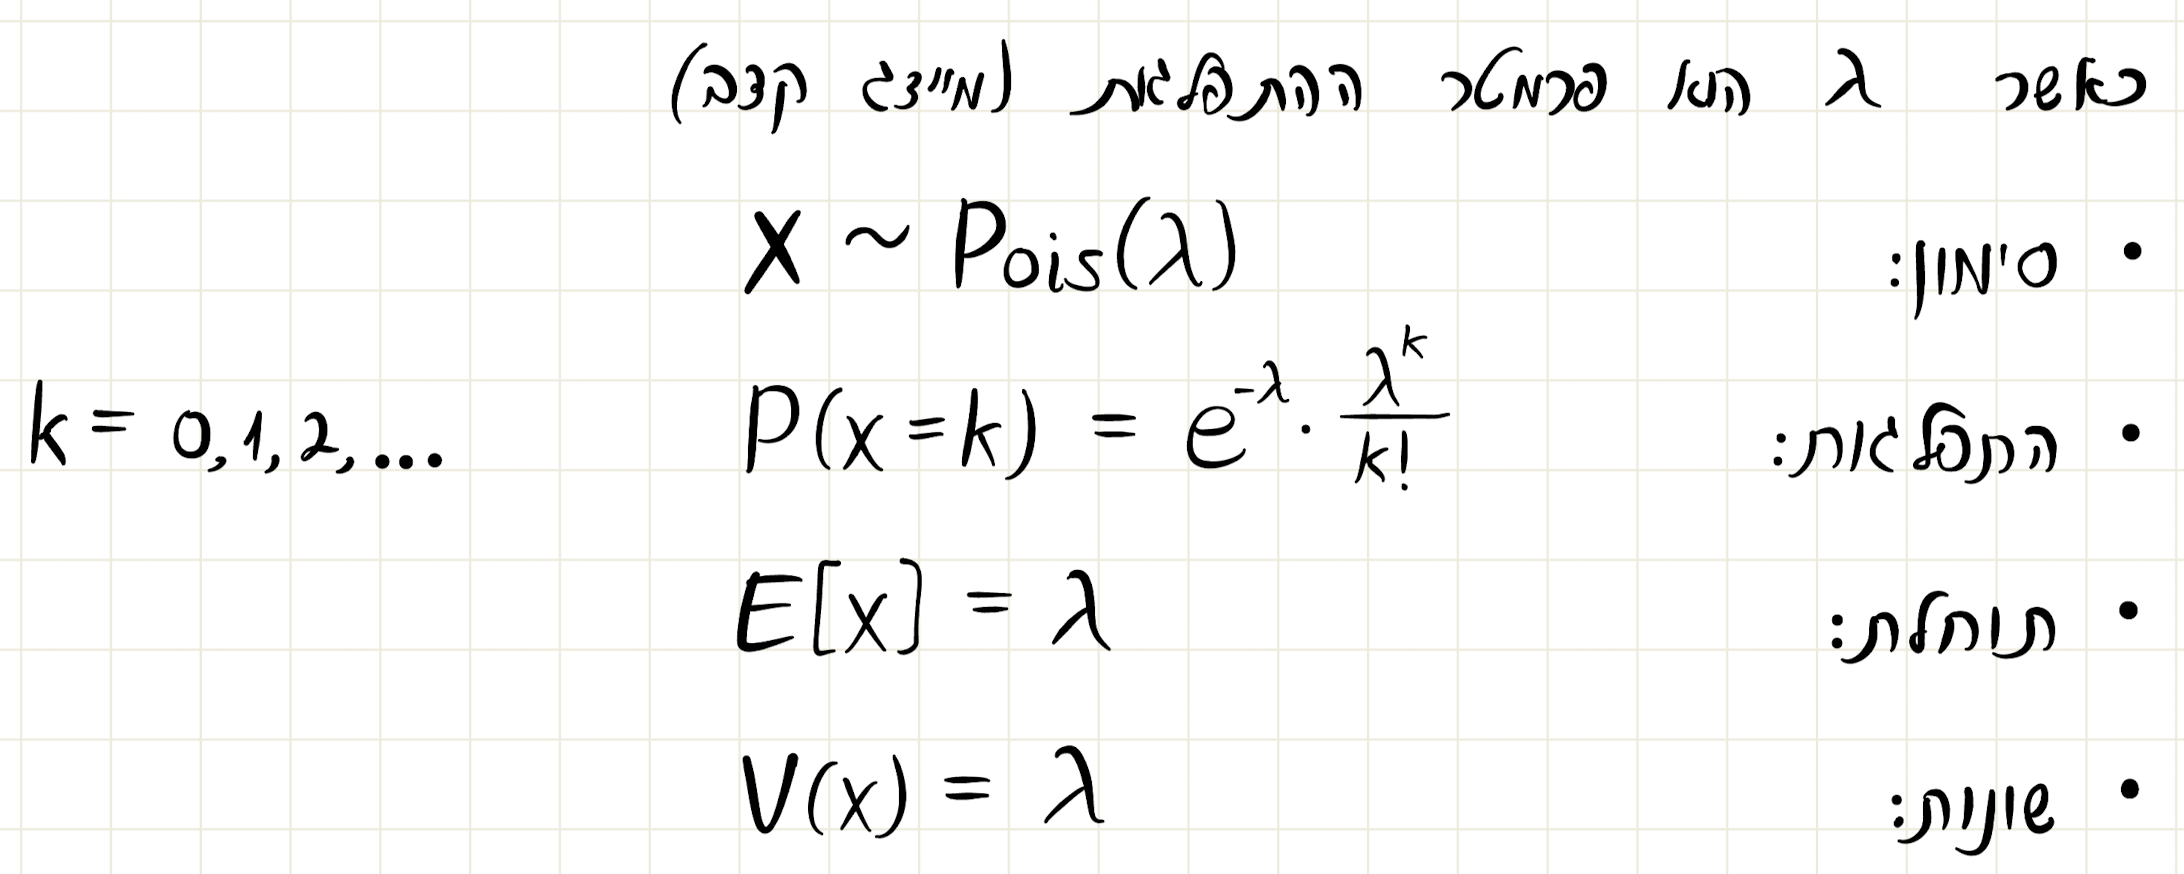 כאשר λ הוא פרמטר ההתפלגות (מייצג קצב)
• סימון: X ~ Pois(λ)
• התפלגות: P(x=k) = e^{-λ} · λ^k / k!   k = 0,1,2,...
• תוחלת: E[x] = λ
• שונות: V(x) = λ